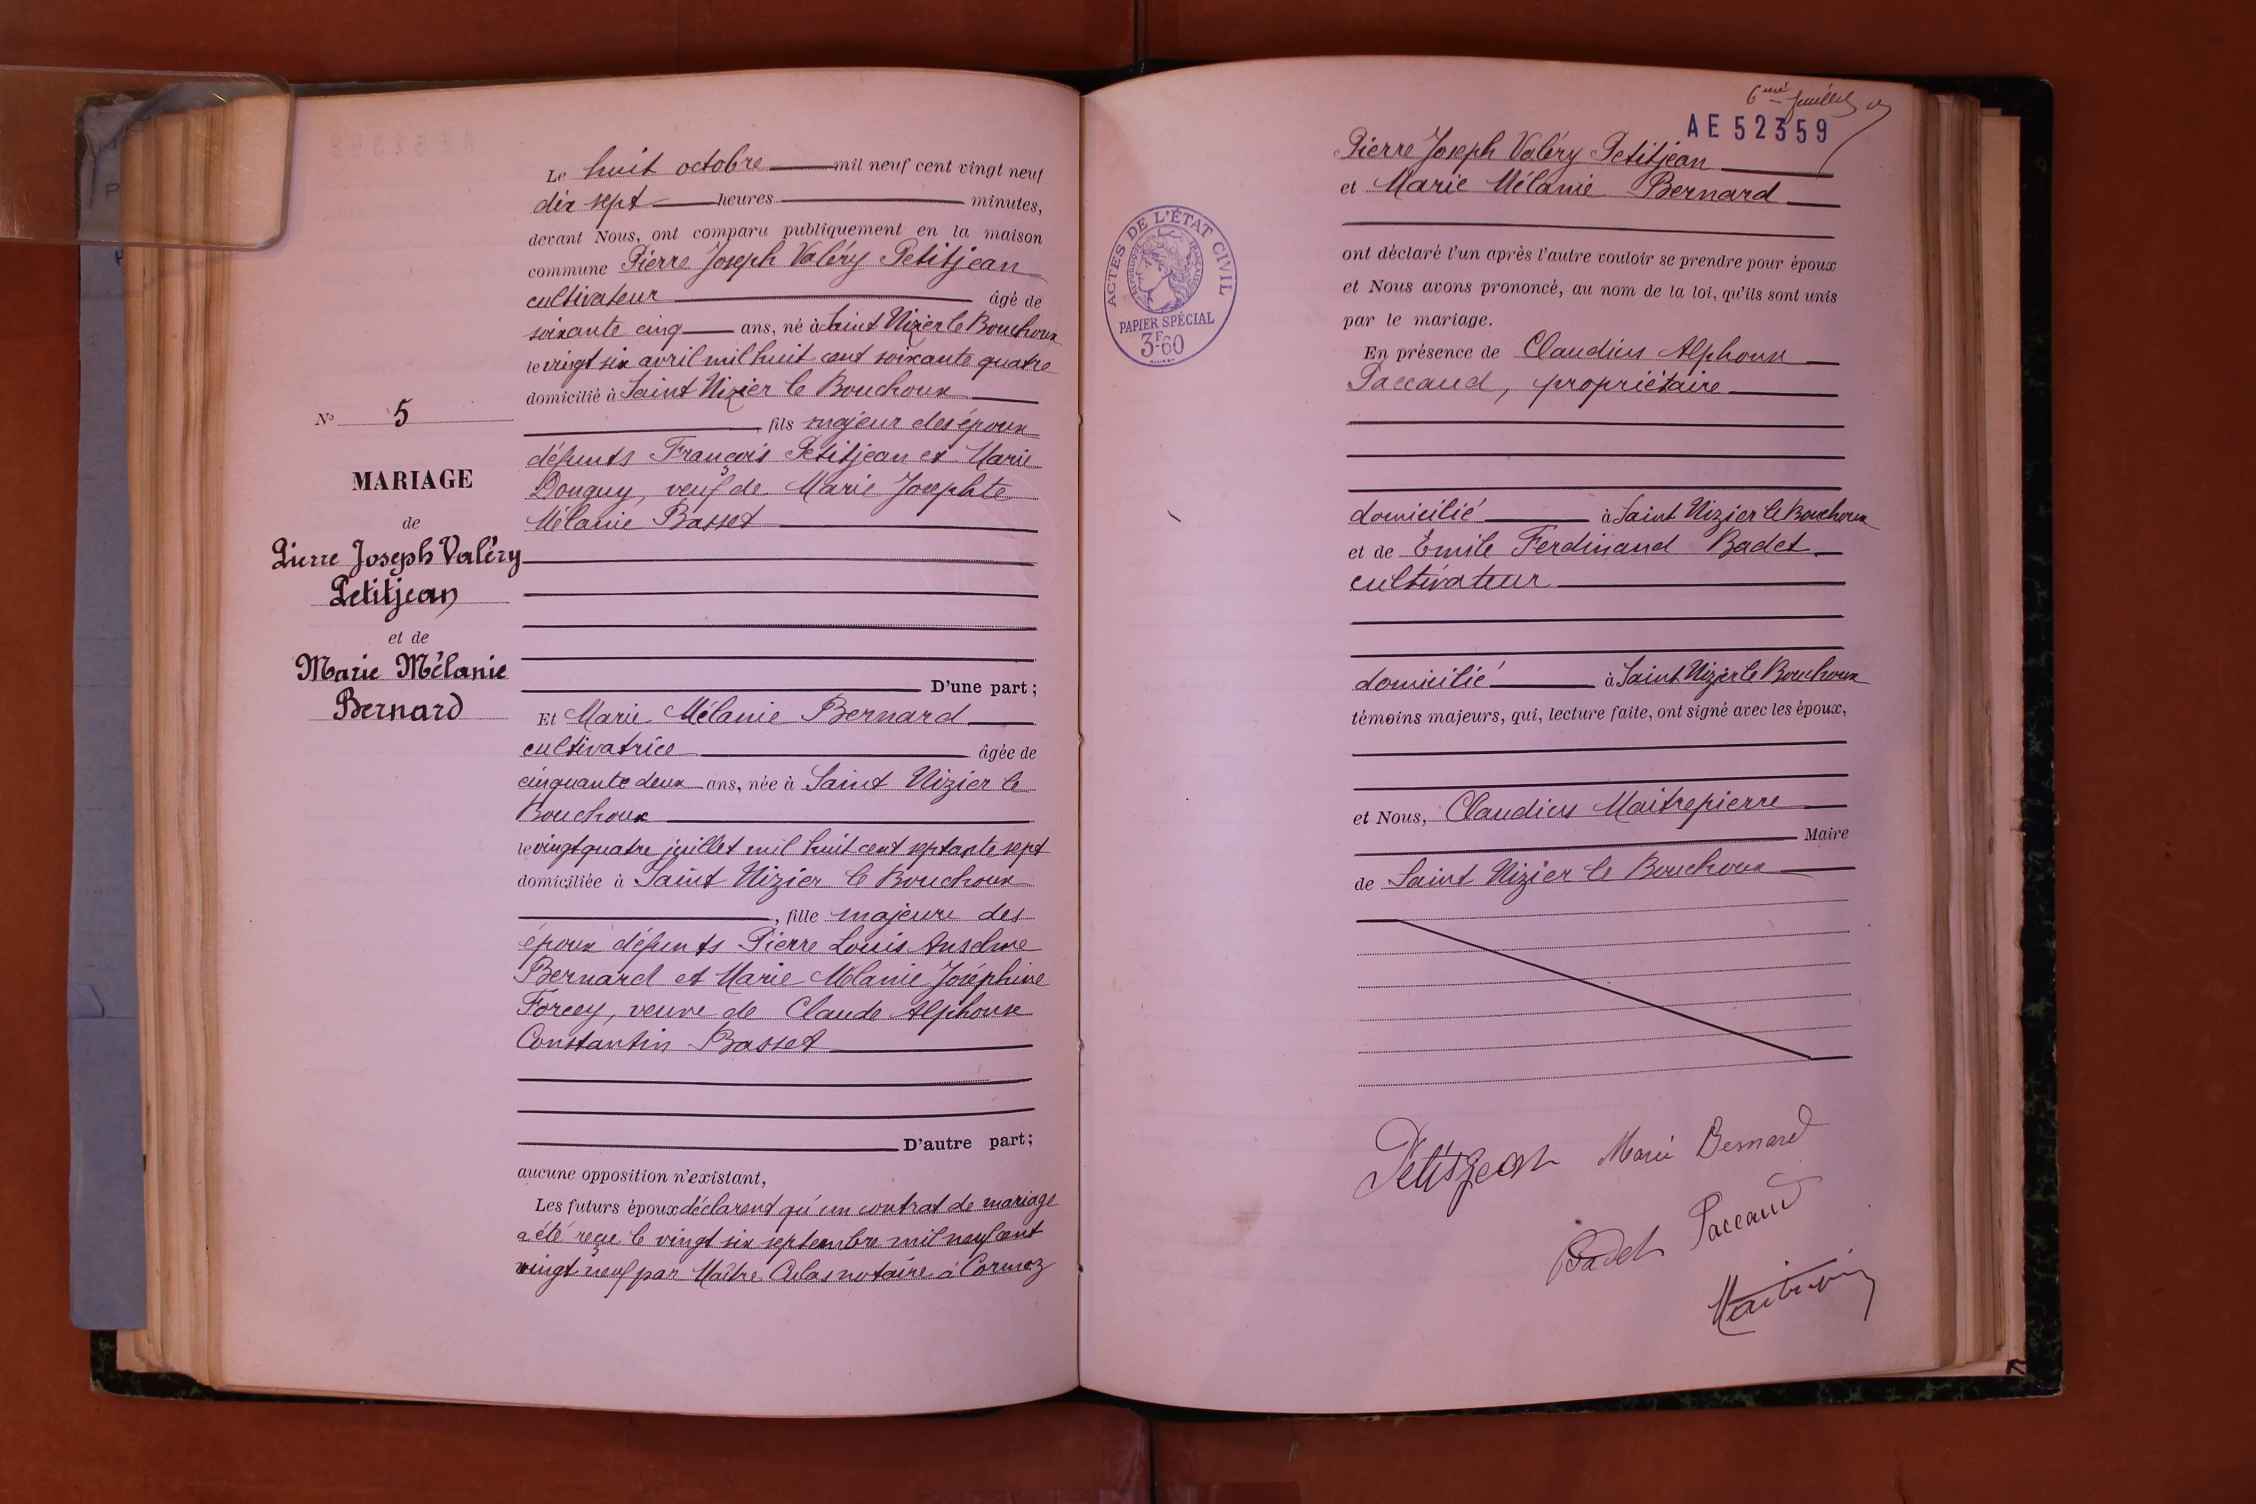 Le huit octobre mil neuf cent vingt neuf
dix sept heures minutes,
devant Nous, ont comparu publiquement en la maison
commune Pierre Joseph Valéry Petitjean
cultivateur âgé de
soixante cinq ans, né à Saint Nizier le Bouchoux
le vingt six avril mil huit cent soixante quatre
domicilié à Saint Nizier le Bouchoux
fils majeur des époux
défunts François Petitjean et Marie
Donguy, veuf de Marie Josephte
Mélanie Basset
D'une part;
Et Marie Mélanie Bernard
cultivatrice âgée de
cinquante deux ans, née à Saint Nizier le
Bouchoux
le vingt quatre juillet mil huit cent septante sept
domiciliée à Saint Nizier le Bouchoux
, fille majeure des
époux défunts Pierre Louis Anselme
Bernard et Marie Mélanie Joséphine
Forcey, veuve de Claude Alphonse
Constantin Basset
D'autre part;
aucune opposition n'existant,
Les futurs époux déclarent qu'un contrat de mariage
a été reçu le vingt six septembre mil neuf cent
vingt neuf par Maître notaire à Cormoz
No 5
MARIAGE
de
Pierre Joseph Valéry
Petitjean
et de
Marie Mélanie
Bernard
6me
AE 52359
Pierre Joseph Valéry Petitjean
et Marie Mélanie Bernard
ont déclaré l'un après l'autre vouloir se prendre pour époux
et Nous avons prononcé, au nom de la loi, qu'ils sont unis
par le mariage.
En présence de Claudius Alphonse
Paccaud, propriétaire
domicilié à Saint Nizier le Bouchoux
et de Emile Ferdinand Badet
cultivateur
domicilié à Saint Nizier le Bouchoux
témoins majeurs, qui, lecture faite, ont signé avec les époux,
et Nous, Claudius Maitrepierre
Maire
de Saint Nizier le Bouchoux
Petitjean Marie Bernard
Badet Paccaud
ACTES DE L'ÉTAT CIVIL
RÉPUBLIQUE FRANÇAISE
PAPIER SPÉCIAL
3F60